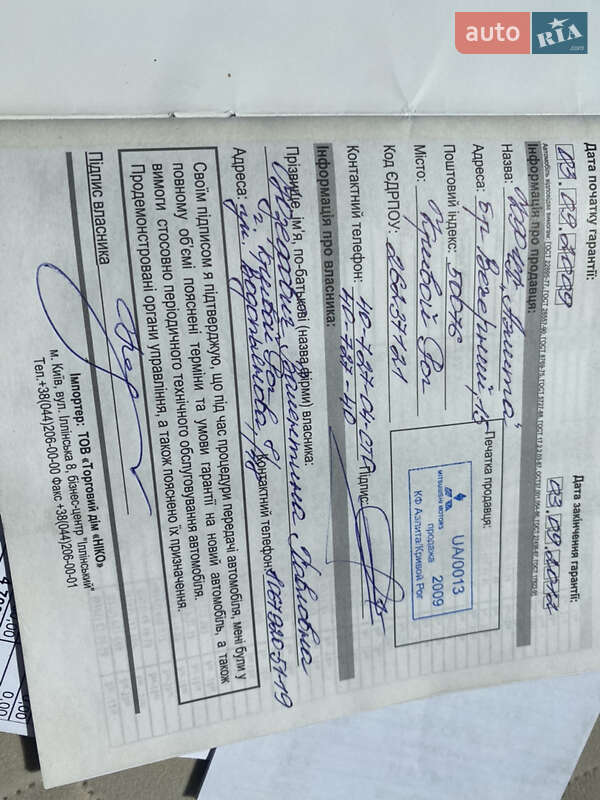 auto RIA.com
Дата початку гарантії:
03.09.2009
Дата закінчення гарантії:
03.09.2012
Інформація про продавця:
Назва: "Аэлита"
Адреса: бр. Вечерний, 13
Поштовий індекс: 50076
Місто: Кривой Рог
Код ЄДРПОУ:
Контактний телефон: 40-727-04-
40-727-40
Підпис:
Печатка продавця:
UA/0013
MITSUBISHI MOTORS
продажа 2009
КФ Аэлита/Кривой Рог
Інформація про власника:
Прізвище, ім'я, по-батькові (назва фірми) власника:
Валентина Павловна
Адреса: г. Кривой Рог
Контактний телефон:
Своїм підписом я підтверджую, що під час процедури передачі автомобіля, мені були у
повному об'ємі пояснені терміни та умови гарантії на новий автомобіль, а також
вимоги стосовно періодичного технічного обслуговування автомобіля.
Продемонстровані органи управління, а також пояснено їх призначення.
Підпис власника
Імпортер: ТОВ «Торговий дім «НІКО»
м. Київ, вул. Іллінська 8, бізнес-центр "Іллінський"
Тел.+38(044)206-00-00 Факс +38(044)206-00-01